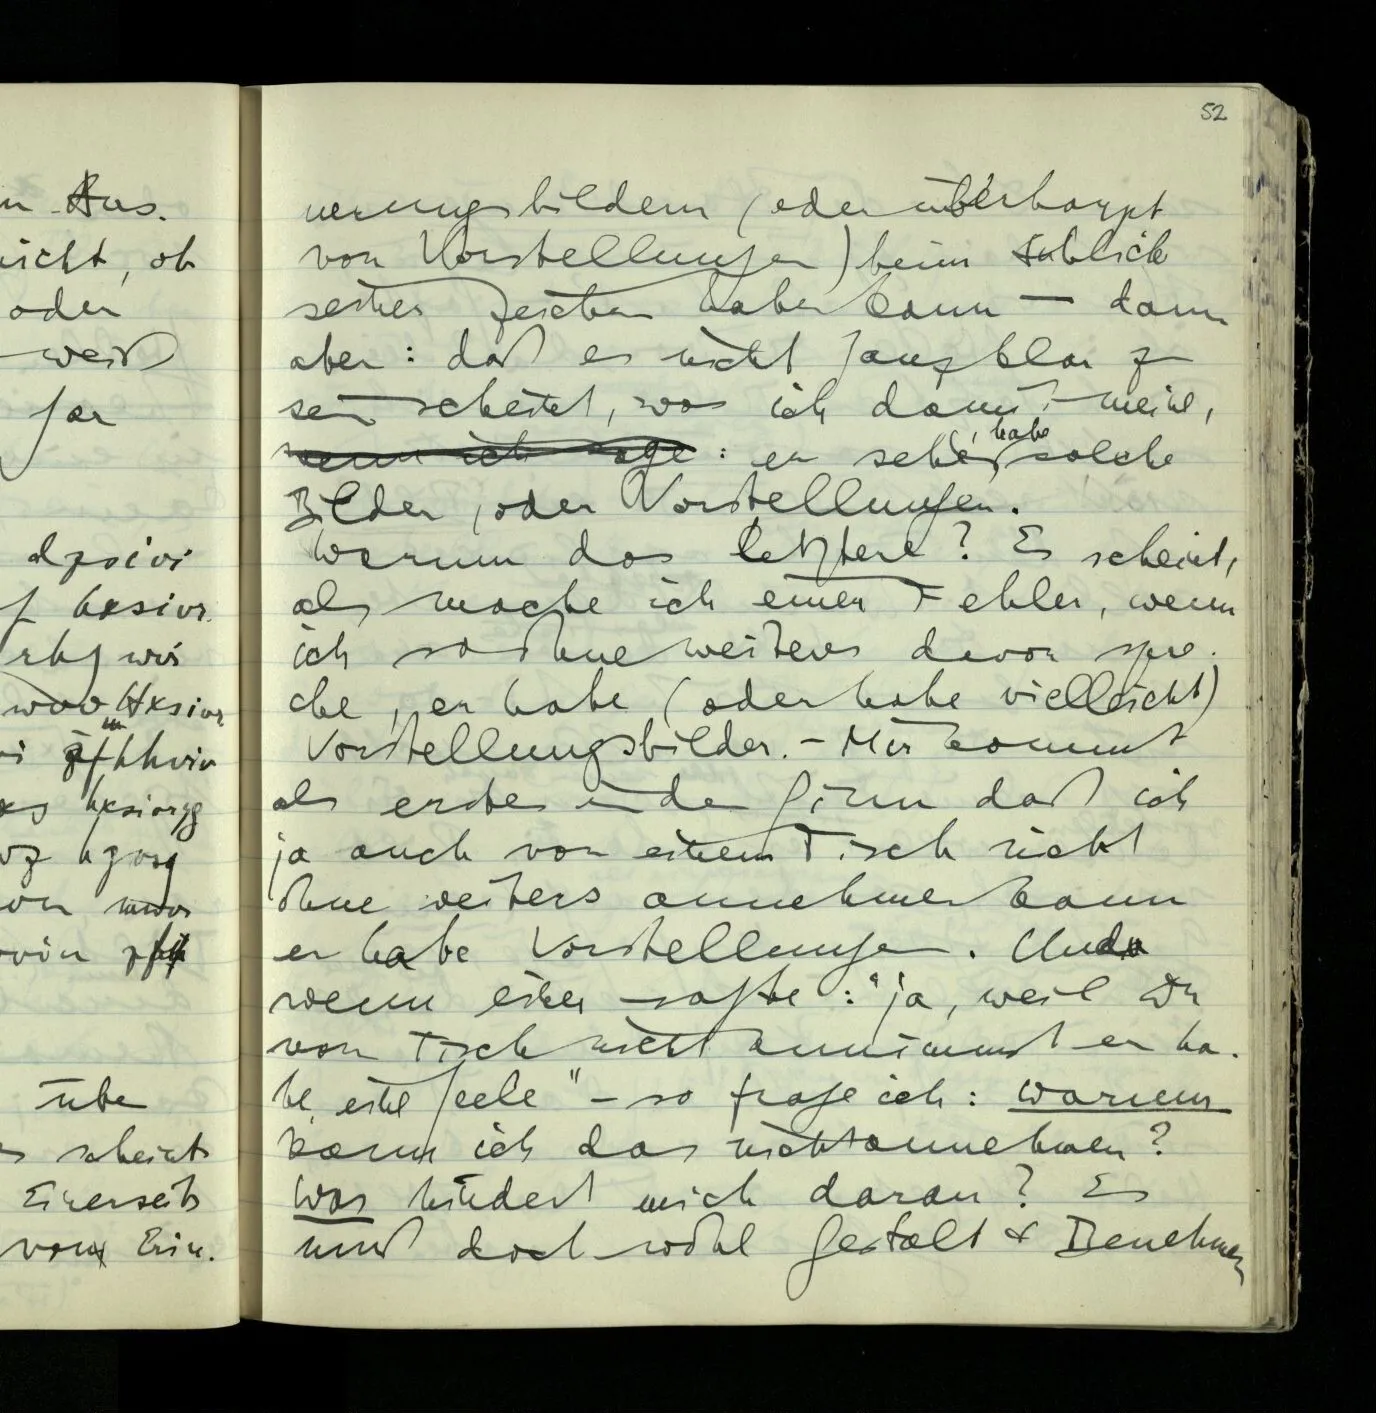 n Aus.
nicht, ob
oder
weiß
gar
dzsivi
f hxsivr.
rhg wri
wvv Hxsivr
hxsiryg
nvr
übe
s scheint
Einerseits
von Erin.
52
nerungsbildern (oder überhaupt
von Vorstellungen) beim Anblick
seiner Zeichen haben kann — dann
aber: daß es nicht ganz klar zu
sein scheint, was ich damit meine,
wenn ich sage: er sehe, habe solche
Bilder, oder Vorstellungen.
Warum das letztere? Es scheint,
als mache ich einen Fehler, wenn
ich so ohne weiteres davon spre-
che, er habe (oder habe vielleicht)
Vorstellungsbilder. – Mir kommt
als erstes in den Sinn daß ich
ja auch von einem Tisch nicht
ohne weiters annehmen kann
er habe Vorstellungen. Und
wenn einer sagte: "ja, weil Du
vom Tisch nicht annimmst er ha-
be eine Seele" – so frage ich: warum
kann ich das nicht annehmen?
Was hindert mich daran? Es
muß doch wohl Gestalt & Benehmen